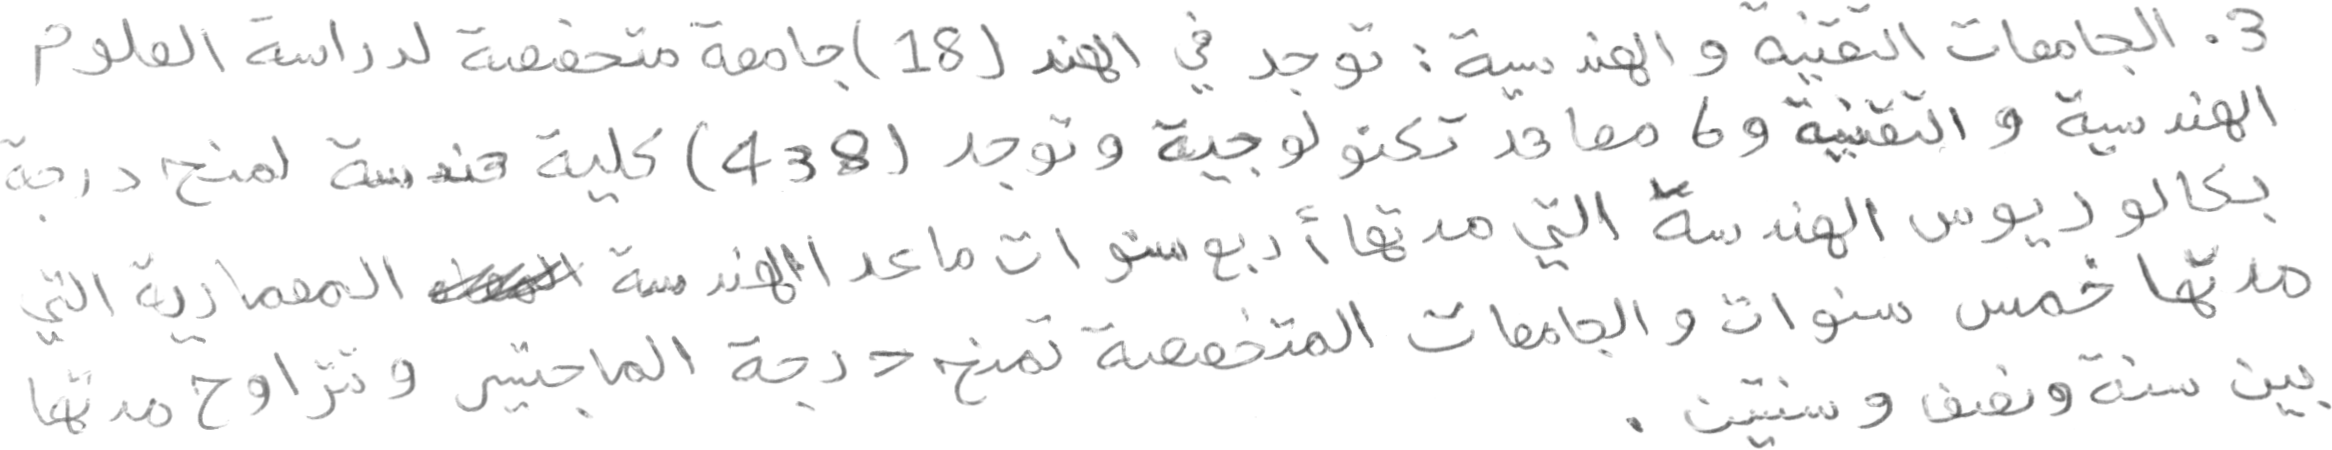 3. الجامعات التقنية و الهندسية : توجد في الهند (18) جامعة متخصصة لدراسة العلوم
الهندسية و التقنية و 6 معاهد تكنولوجية و توجد (438) كلية هندسة لمنح درجة
بكالوريوس الهندسة التي مدتها أربع سنوات ماعدا الهندسة المعمارية التي
مدتها خمس سنوات و الجامعات المتخصصة تمنح درجة الماجتسير و تتراوح مدتها
بين سنة و نصف و سنتين .